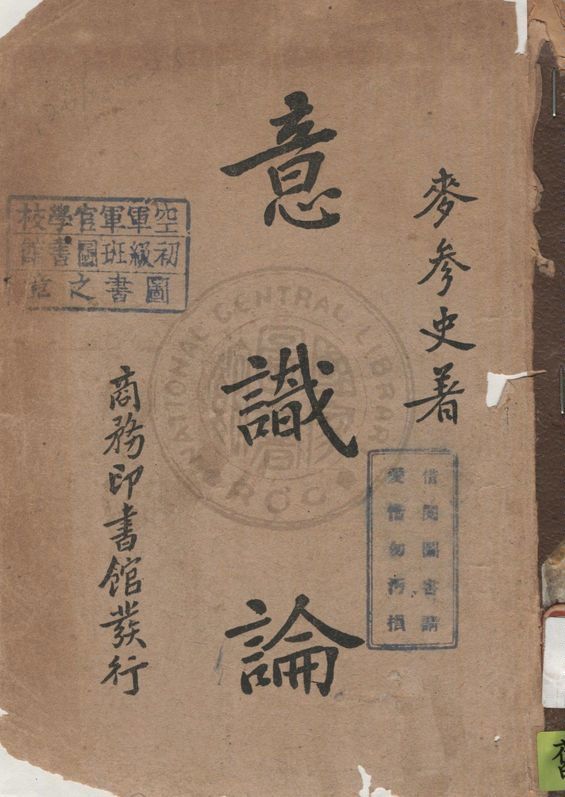 麥參史著
意識論
商務印書館發行
空軍軍官學校
初級班圖書館
圖書之章
借閱圖書請
愛惜勿污損
NATIONAL CENTRAL LIBRARY
ROC